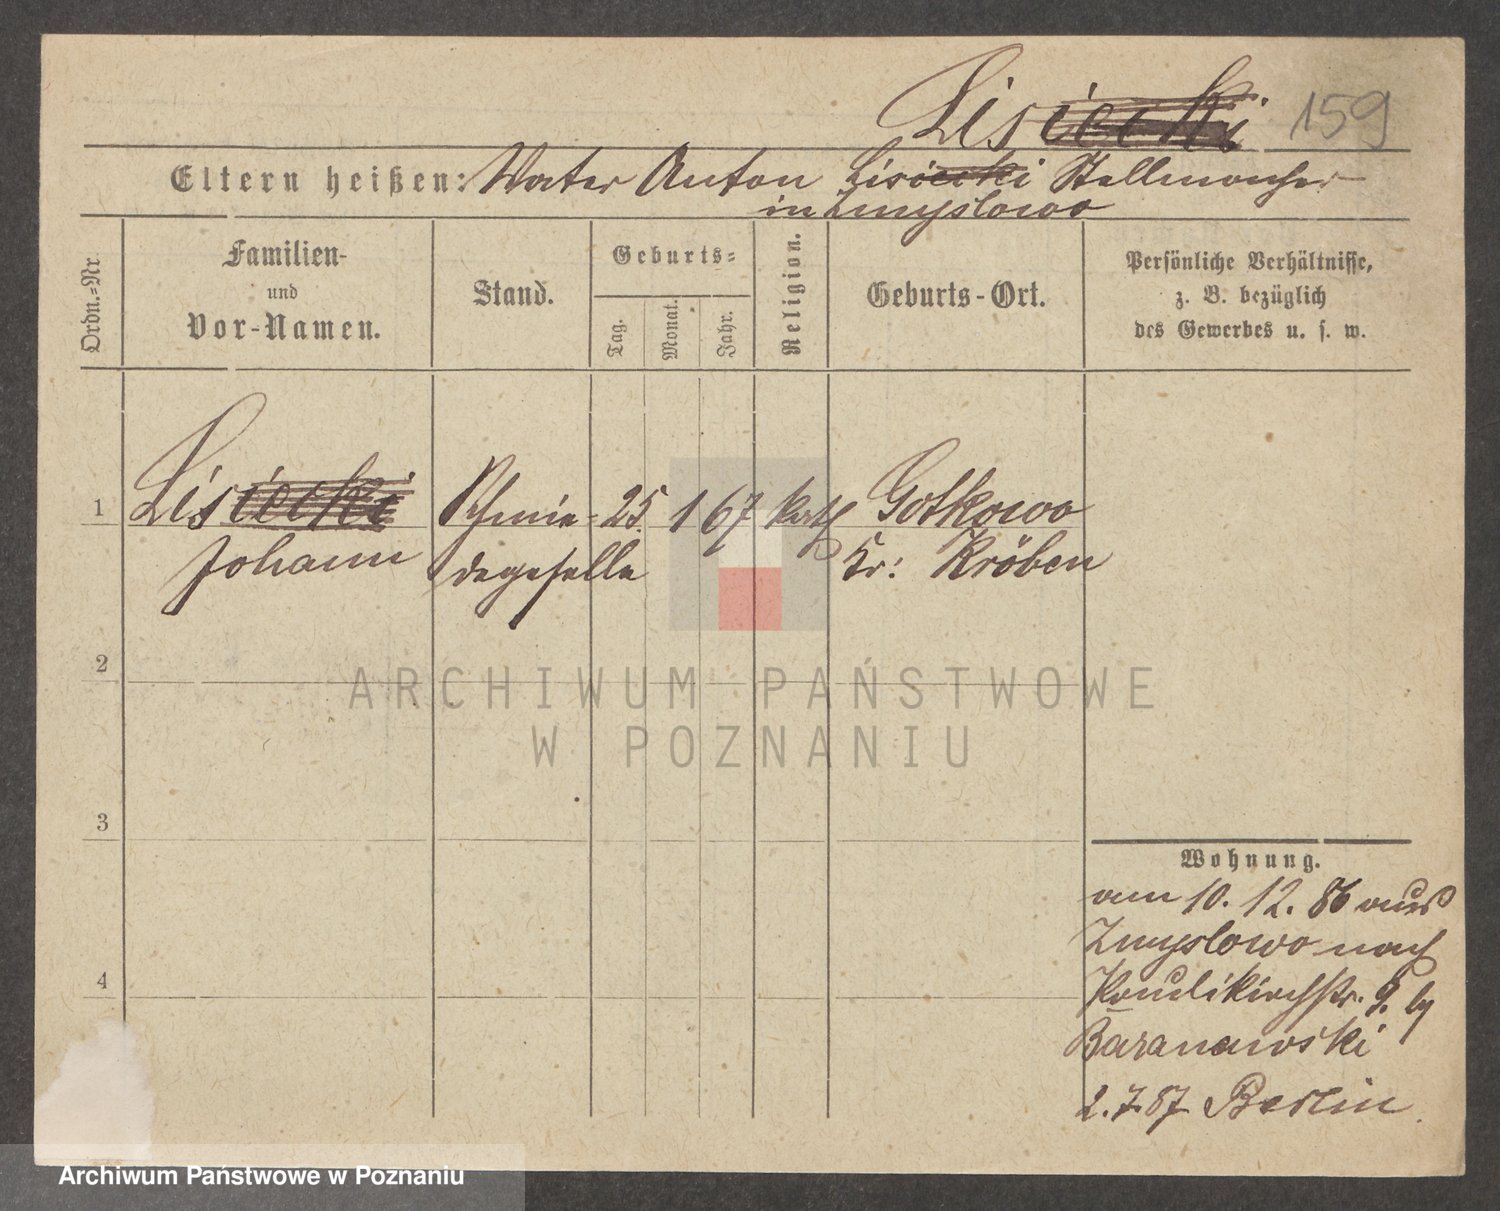 Lisiecki 159
Eltern heißen: Vater Anton Lisiecki Stellmacher
in Zmyslowo
Ordn.-Nr.
Familien-
und
Vor-Namen.
Stand.
Geburts-
Tag.
Monat.
Jahr.
Religion.
Geburts-Ort.
Persönliche Verhältnisse,
z. B. bezüglich
des Gewerbes u. s. w.
1 Lisiecki Schmie- 25. 1 67 kath Gotkowo
Johann degeselle Kr: Kröben
2
3
4
Wohnung.
am 10. 12. 86 aus
Zmyslowo nach
Paulikirchstr. 9. by
Baranowski
2. 7. 87 Berlin
ARCHIWUM PAŃSTWOWE
W POZNANIU
Archiwum Państwowe w Poznaniu